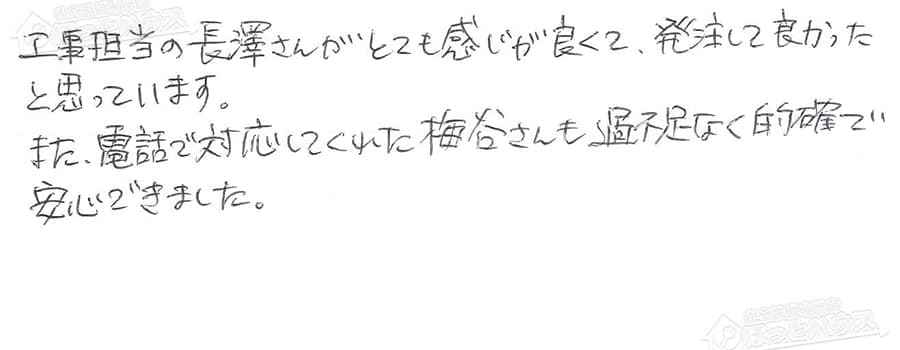 工事担当の長澤さんがとても感じが良くて、発注して良かった
と思っています。
また、電話で対応してくれた梅谷さんも過不足なく的確で
安心できました。